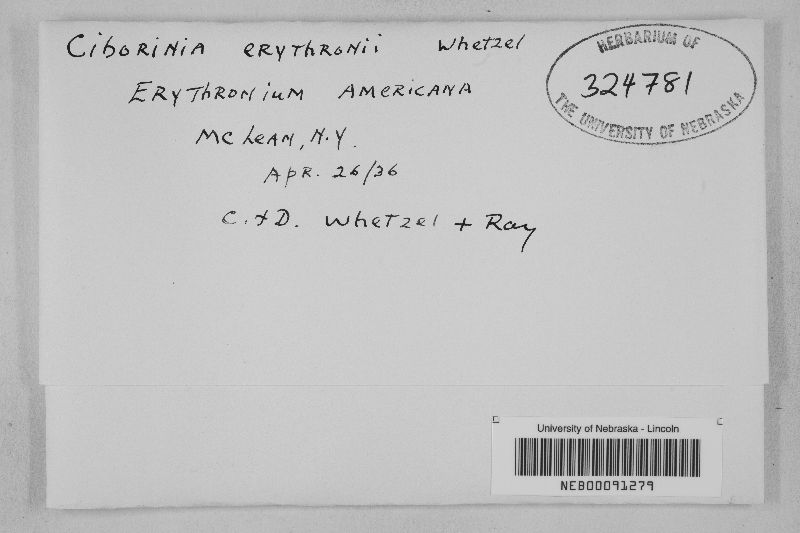 Ciborinia erythronii Whetzel
Erythronium americana
McLean, N.Y.
Apr. 26/36
C. + D. Whetzel + Ray
HERBARIUM OF
324781
THE UNIVERSITY OF NEBRASKA
University of Nebraska - Lincoln
NEB00091279